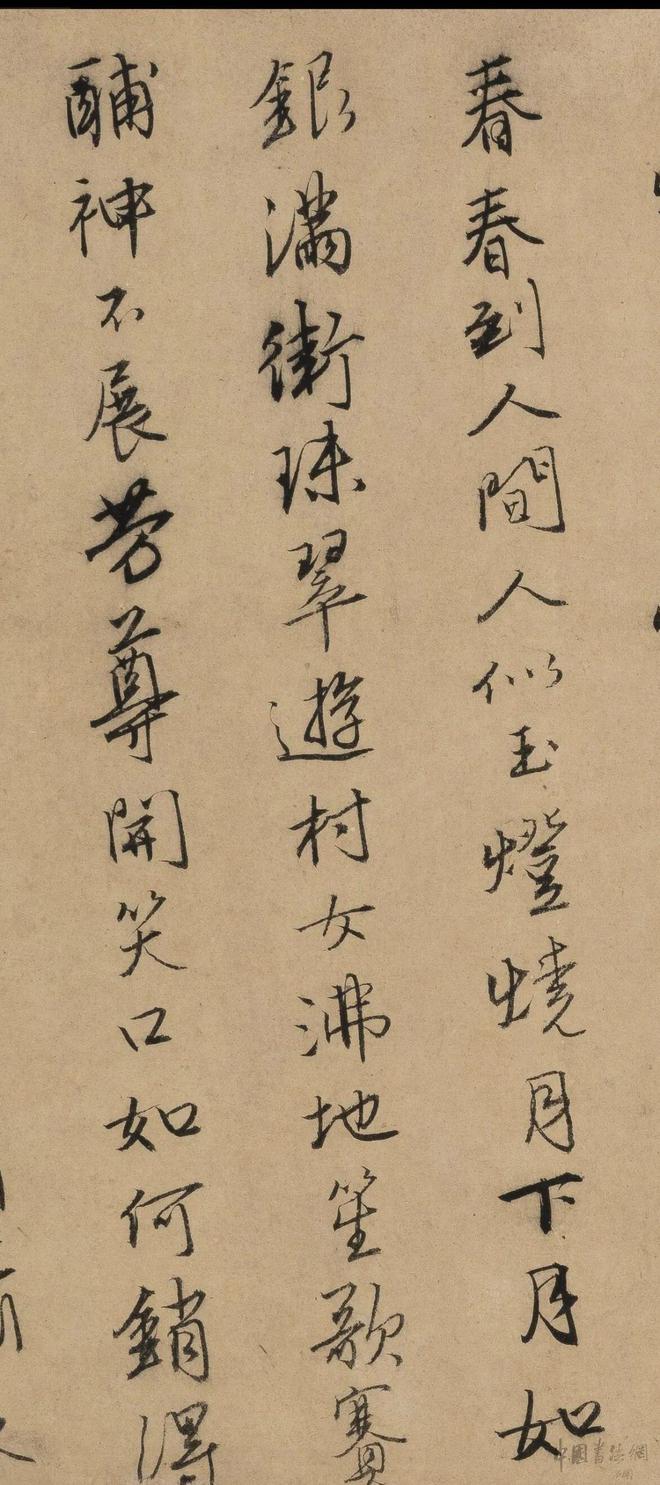 春春到人間人似玉燈燒月下月如
銀滿街珠翠遊村女沸地笙歌賽
酺神不展芳尊開笑口如何銷得
中國書法網